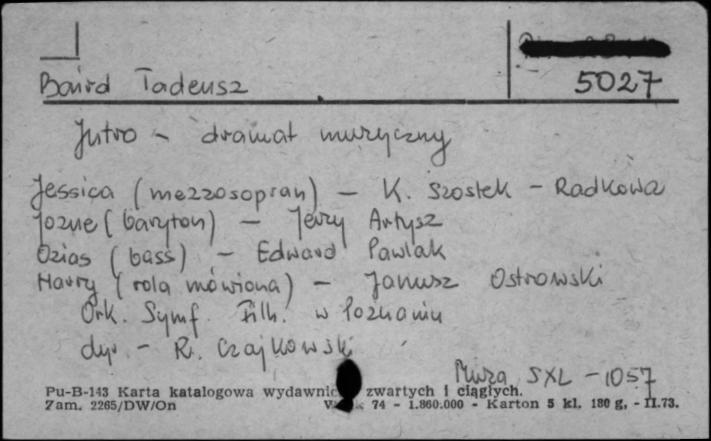 Baird Tadeusz
5027
Jutro - dramat muzyczny
Jessica (mezzosopran) - K. Szostek - Radkowa
Jozue (baryton) - Jerzy Artysz
Ozias (bass) - Edward Pawlak
Harry (rola mówiona) - Janusz Ostrowski
Ork. Symf. Filh. w Poznaniu
dyr - R. Czajkowski
Muza SXL - 1057
Pu-B-143 Karta katalogowa wydawnic zwartych i ciągłych.
Zam. 2265/DW/On 74 - 1.860.000 - Karton 5 kl. 180 g, - II.73.